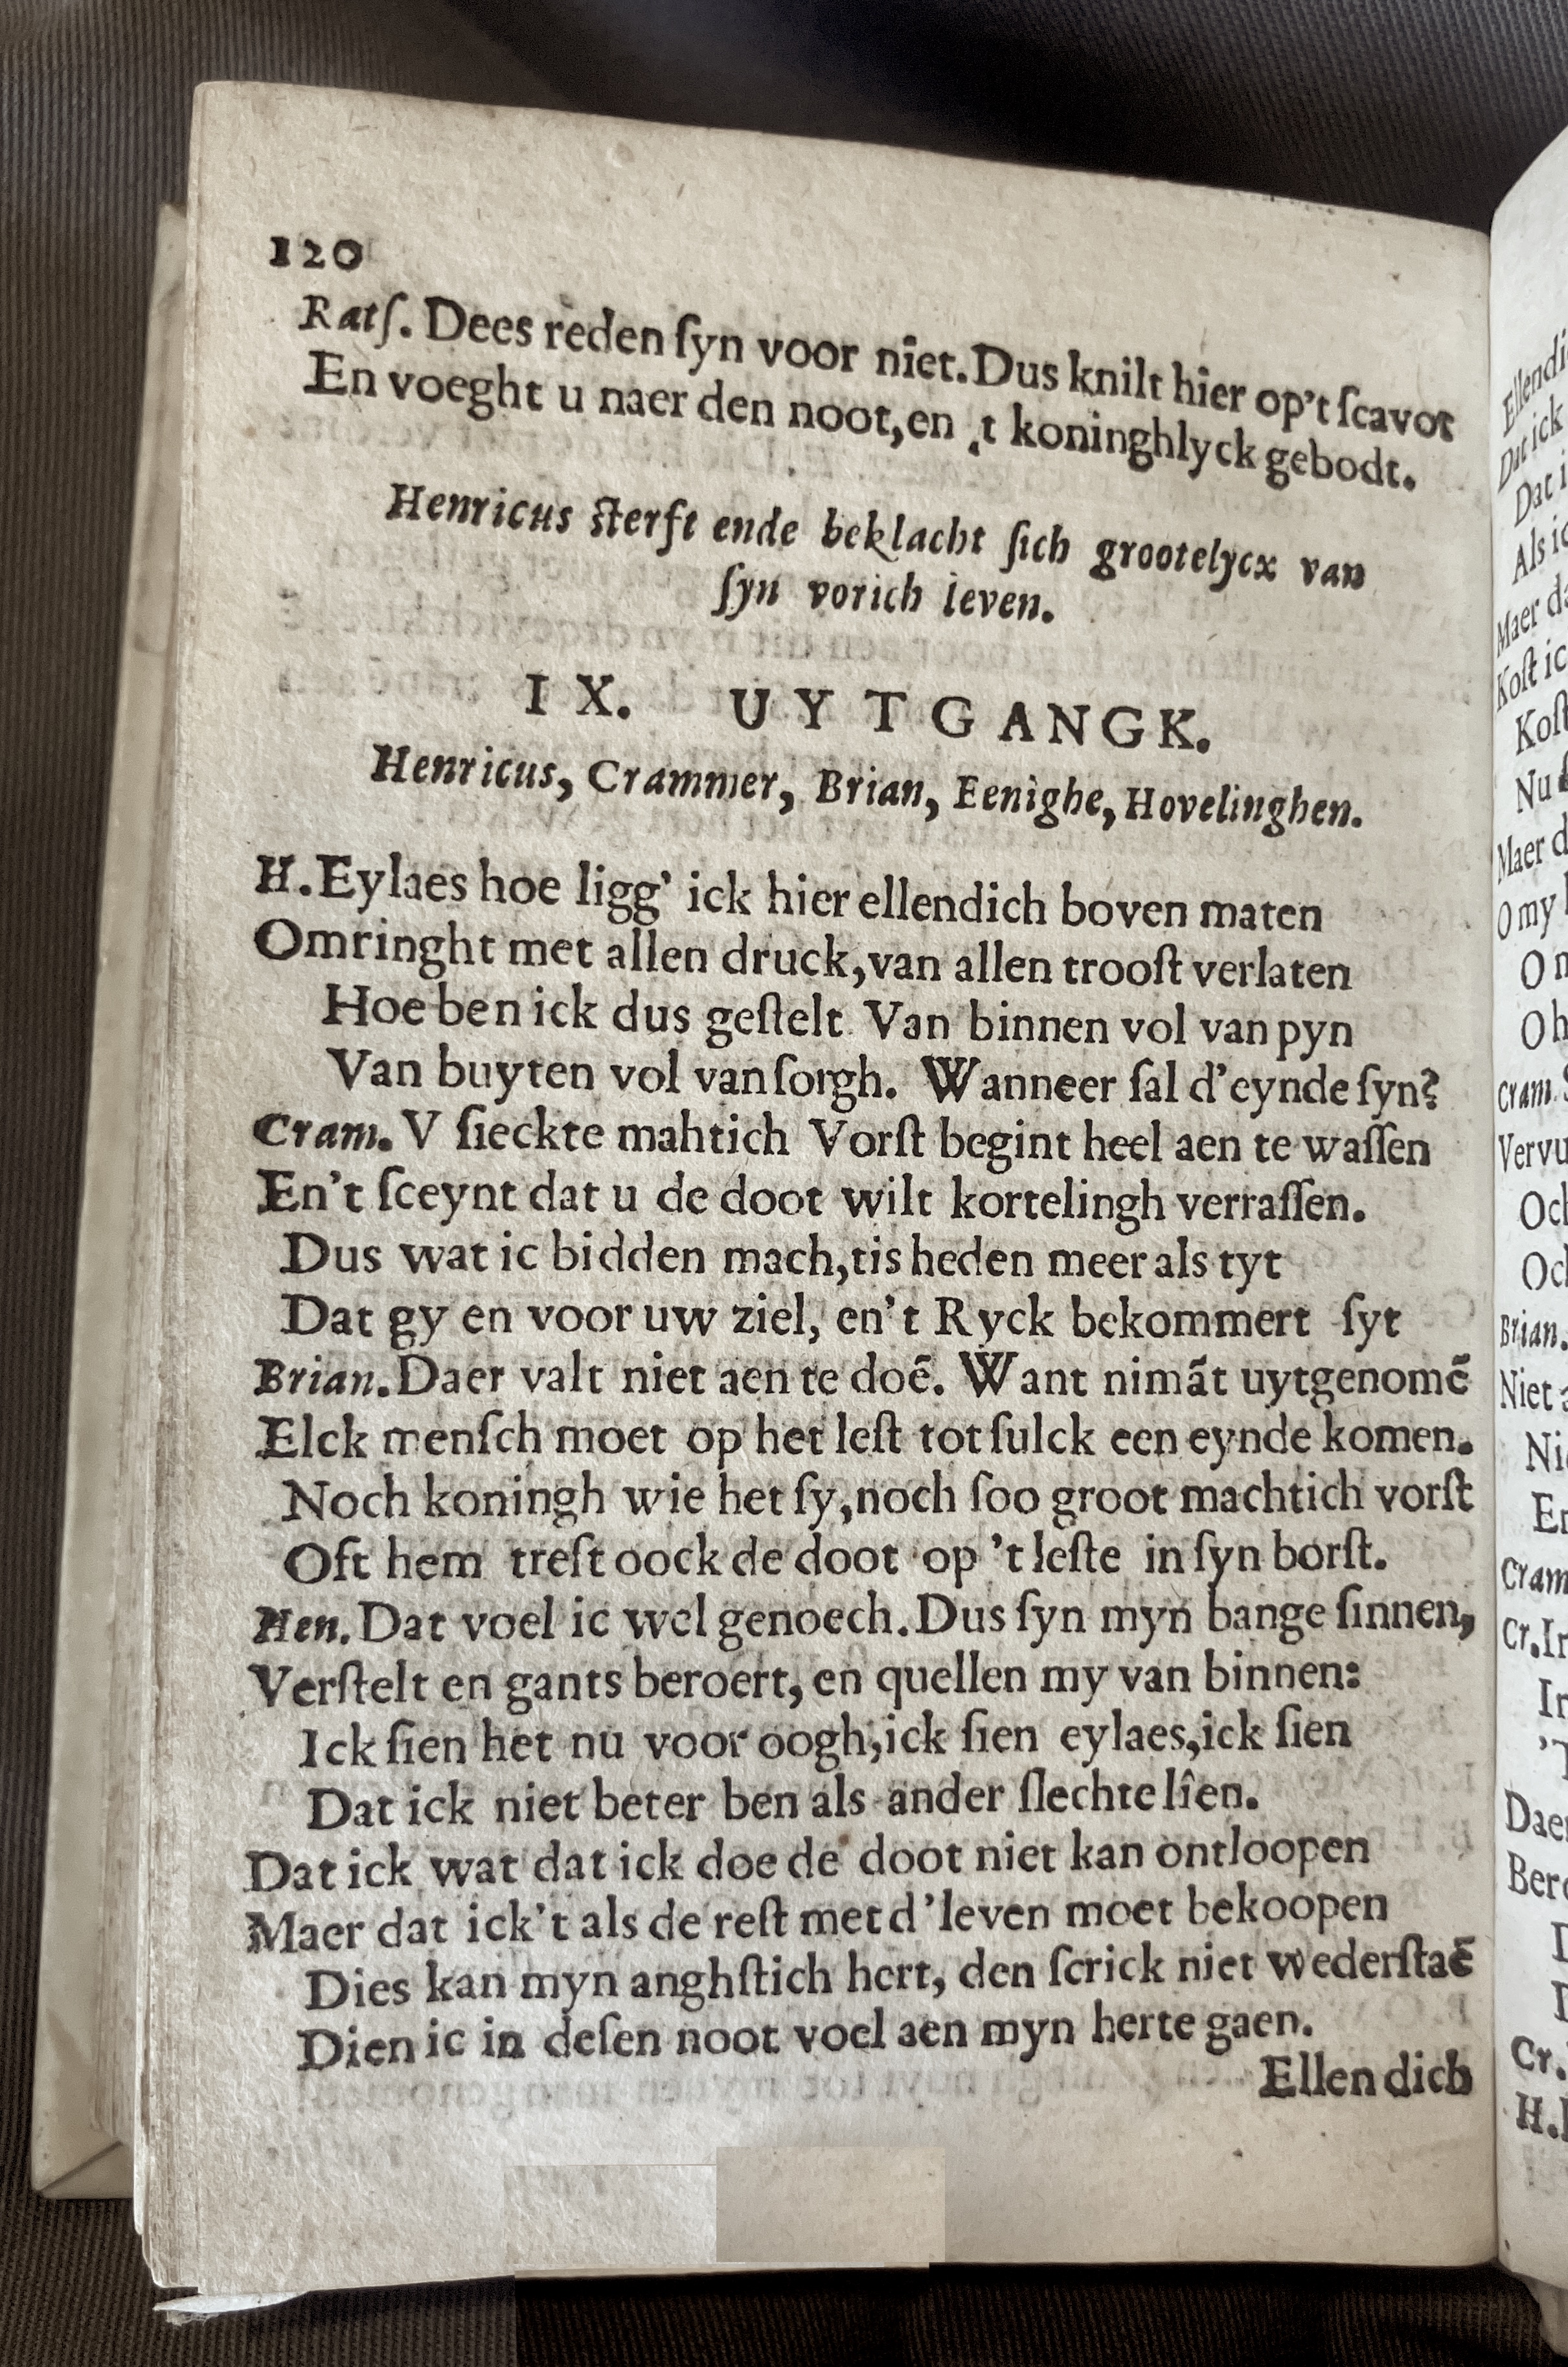 120
Ratſ. Dees reden ſyn voor niet. Dus knilt hier op't ſcavot
En voeght u naer den noot, en ,t koninghlyck gebodt.
Henricus ſterft ende beklacht ſich grootelycx van
ſyn vorich leven.
IX. UYTGANGK.
Henricus, Crammer, Brian, Eenighe, Hovelinghen.
H. Eylaes hoe ligg' ick hier ellendich boven maten
Omringht met allen druck, van allen trooſt verlaten
Hoe ben ick dus geſtelt Van binnen vol van pyn
Van buyten vol van ſorgh. Wanneer ſal d'eynde ſyn?
Cram. V ſieckte mahtich Vorſt begint heel aen te waſſen
En't ſceynt dat u de doot wilt kortelingh verraſſen.
Dus wat ic bidden mach, tis heden meer als tyt
Dat gy en voor uw ziel, en't Ryck bekommert ſyt
Brian. Daer valt niet aen te doē. Want nimāt uytgenomē
Elck menſch moet op het leſt tot ſulck een eynde komen.
Noch koningh wie het ſy, noch ſoo groot machtich vorſt
Oft hem treft oock de doot op 't leſte in ſyn borſt.
Hen. Dat voel ic wel genoech. Dus ſyn myn bange ſinnen,
Verſtelt en gants beroert, en quellen my van binnen:
Ick ſien het nu voor oogh, ick ſien eylaes, ick ſien
Dat ick niet beter ben als ander ſlechte lîen.
Dat ick wat dat ick doe de doot niet kan ontloopen
Maer dat ick't als de reſt met d'leven moet bekoopen
Dies kan myn anghſtich hert, den ſcrick niet wederſtaē
Dien ic in deſen noot voel aen myn herte gaen.
Ellendich
Dat ick
Dat i
Als ic
Maer da
Koſt ic
Koſt
Maer d
O my
Cram.
Vervu
Och
Brian.
Niet
Cram
Cr. Ir
Daer
Bero
Cr.
H.